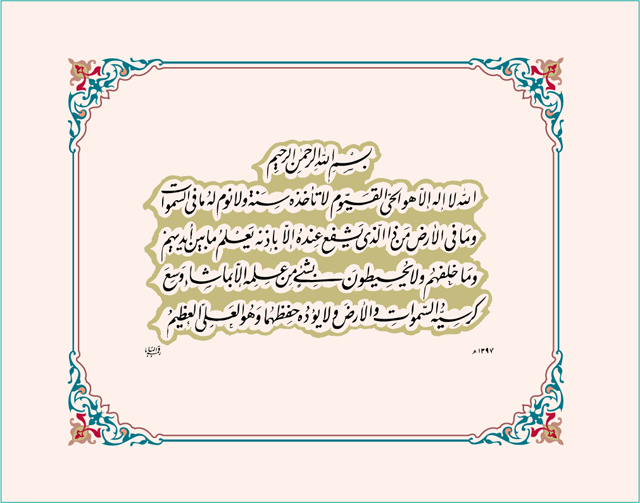 بسم الله الرحمن الرحيم
الله لا إله إلا هو الحي القيوم لا تأخذه سنة ولا نوم له ما في السموات
وما في الأرض من ذا الذي يشفع عنده إلا بإذنه يعلم ما بين أيديهم
وما خلفهم ولا يحيطون بشيء من علمه إلا بما شاء وسع
كرسيه السموات والأرض ولا يؤده حفظهما وهو العلي العظيم
١٣٩٧ هـ